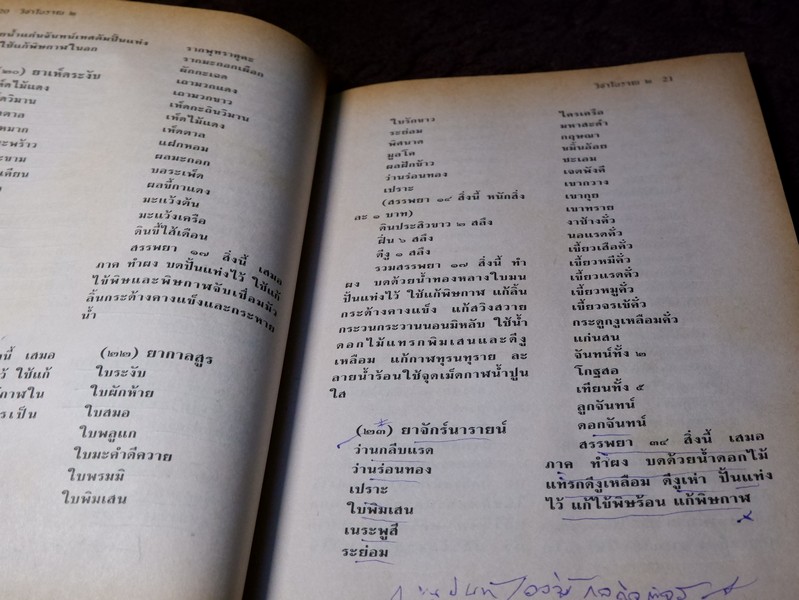 ๒๐ วิสาโอราพธ ๒
น้ำแก่นจันทน์เทศดัมปั้นแท่ง
ใช้แก้พิษกาฬในอก
(๒๐) ยาเห็ดระงับ
เห็ดไม้แดง
วิมาน
ตาล
หมาก
ะพร้าว
ะขาม
เดียน
รากพุทราคุดะ
รากมะกอกเผือก
ผักกะเฉด
เถามวกแดง
เถามวกขาว
เห็ดกะถินวิมาน
เห็ดไม้แดง
เห็ดตาล
แฝกหอม
ผลมะกอก
บอระเพ็ด
ผลขี้กาแดง
มะแว้งต้น
มะแว้งเครือ
ดินขี้ไส้เดือน
สรรพยา ๑๗ สิ่งนี้ เสมอ
ภาค ทำผง บดปั้นแท่งไว้ ใช้แก้
ไข้พิษและพิษกาฬจับเชื่อมมัว
ลิ้นกระด้างคางแข็งและกระหาย
น้ำ
นี้ เสมอ
ว้ ใช้แก้
กาฬใน
รเป็น
(๒๒) ยากาลสูร
ใบระงับ
ใบผักห้าย
ใบสมอ
ใบพลูแก
ใบมะคำดีควาย
ใบพรมมิ
ใบพิมเสน
วิสาโอราพธ ๒ 21
ใบรักขาว
ระย่อม
พิศนาด
มูลโค
ผลฝักข้าว
ว่านร่อนทอง
เปราะ
(สรรพยา ๑๔ สิ่งนี้ หนักสิ่ง
ละ ๑ บาท)
ดินประสิวขาว ๒ สลึง
ฝิ่น ๖ สลึง
ดีงู ๑ สลึง
รวมสรรพยา ๑๗ สิ่งนี้ ทำ
ผง บดด้วยน้ำทองหลางใบมน
ปั้นแท่งไว้ ใช้แก้พิษกาฬ แก้ลิ้น
กระด้างคางแข็ง แก้สวิงสวาย
กระวนกระวานนอนมิหลับ ใช้น้ำ
ดอกไม้แทรกพิมเสนและดีงู
เหลือม แก้กาฬทุรนทุราย ละ
ลายน้ำร้อนใช้จุดเม็ดกาฬน้ำปูน
ใส
(๒๓) ยาจักร์นารายน์
ว่านกลีบแรด
ว่านร่อนทอง
เปราะ
ใบพิมเสน
เนระพูสี
ระย่อม
ไคร้เครือ
มหาสะดำ
กฤษณา
ขมิ้นอ้อย
ชะเอม
เจตพังคี
เขากวาง
เขากุย
เขาทราย
งาช้างคั่ว
นอแรดคั่ว
เขี้ยวเสือคั่ว
เขี้ยวหมีคั่ว
เขี้ยวแรดคั่ว
เขี้ยวหมูคั่ว
เขี้ยวจรเข้คั่ว
กระดูกงูเหลือมคั่ว
แก่นสน
จันทน์ทั้ง ๒
โกฐสอ
เทียนทั้ง ๕
ลูกจันทน์
ดอกจันทน์
สรรพยา ๓๔ สิ่งนี้ เสมอ
ภาค ทำผง บดด้วยน้ำดอกไม้
แทรกดีงูเหลือม ดีงูเห่า ปั้นแท่ง
ไว้ แก้ไข้พิษร้อน แก้พิษกาฬ